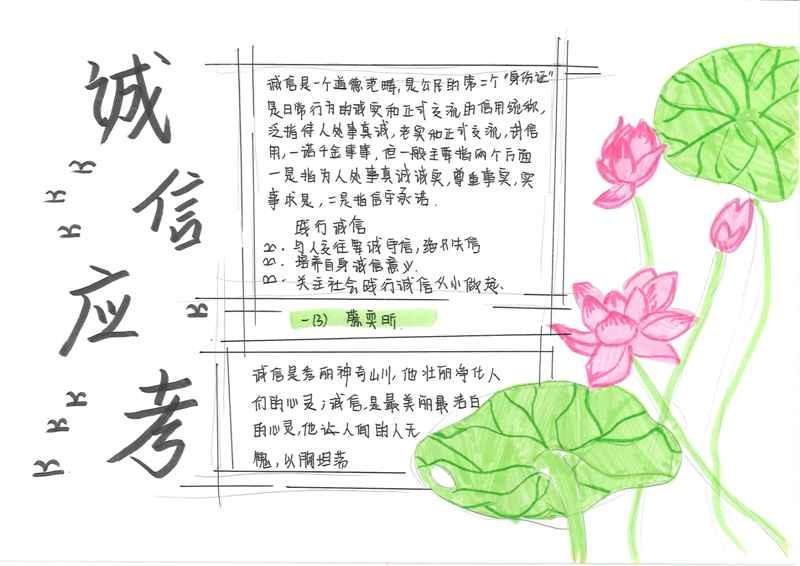 诚信应考
诚信是一个道德范畴,是公民的第二个“身份证”
是日常行为的诚实和正式交流的信用统称,
泛指待人处事真诚,老实和正式交流,讲信
用,一诺千金等等,但一般主要指两个方面
一是指为人处事真诚诚实,尊重事实,实
事求是,二是指信守承诺.
践行诚信
与人交往要诚守信,绝不失信
培养自身诚信意义.
关注社会践行诚信从小做起.
一(3)
诚信是秀丽神奇山川,他壮丽净化人
们的心灵;诚信是最美丽最洁白
的心灵,他让人间的人无
愧,以胸坦荡